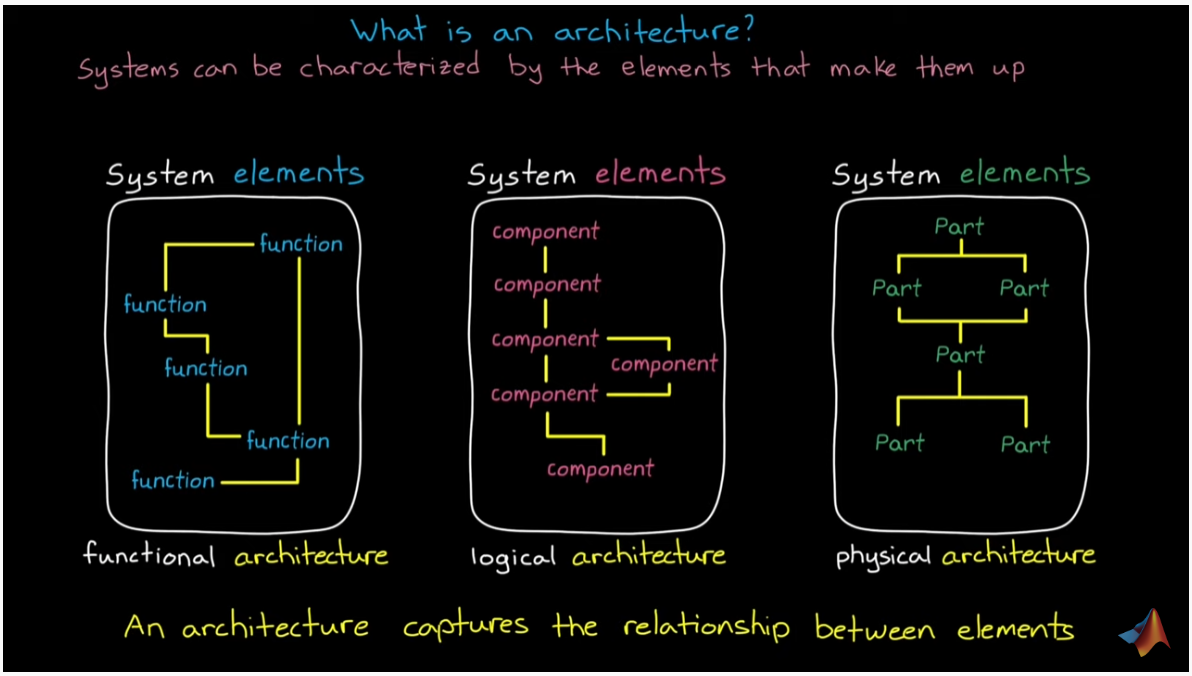 What is an architecture?
Systems can be characterized by the elements that make them up
System elements
function
function
function
function
function
functional architecture
System elements
component
component
component
component
component
component
logical architecture
System elements
Part
Part Part
Part
Part Part
physical architecture
An architecture captures the relationship between elements